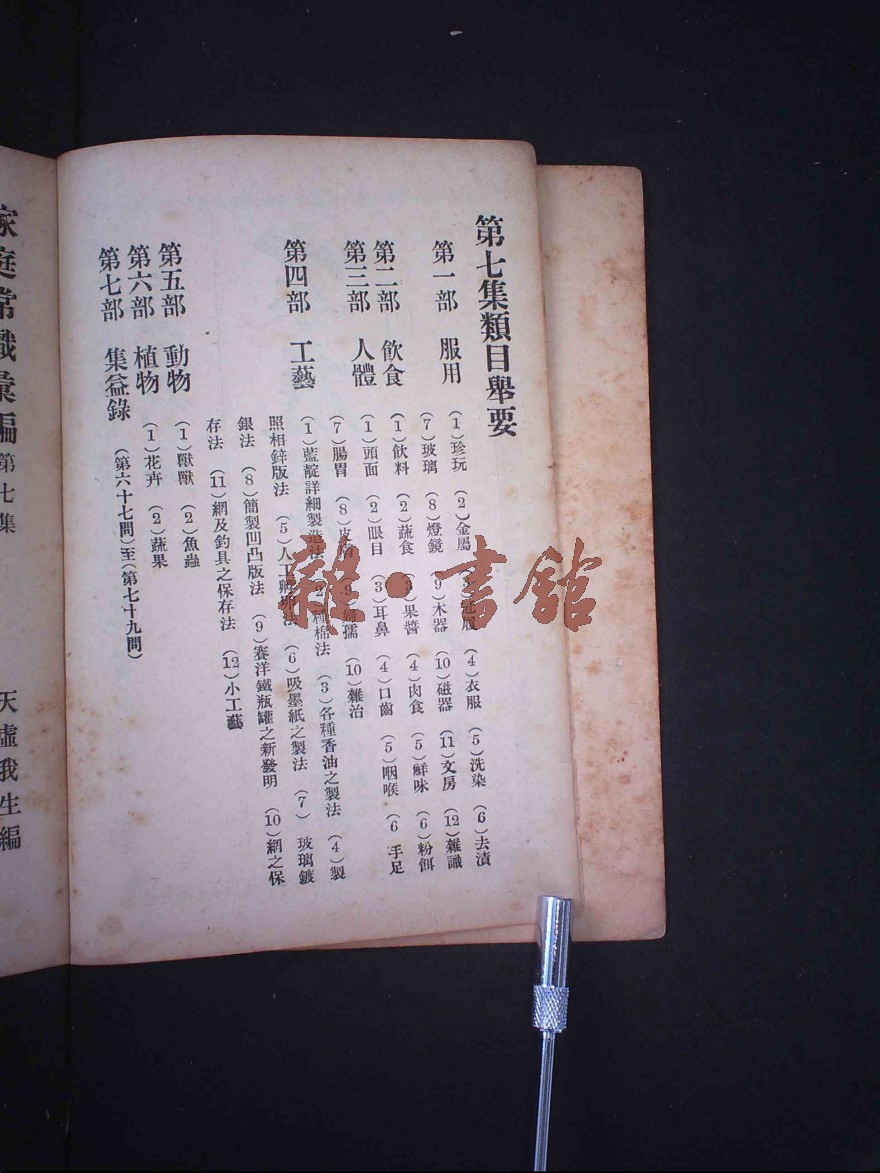 第七集類目舉要
第一部 服用
(1)珍玩 (2)金屬 冠履 (4)衣服 (5)洗染 (6)去漬
(7)玻璃 (8)燈鏡 (9)木器 (10)磁器 (11)文房 (12)雜識
第二部 飲食
(1)飲料 (2)蔬食 果醬 (4)肉食 (5)鮮味 (6)粉餌
第三部 人體
(1)頭面 (2)眼目 (3)耳鼻 (4)口齒 (5)咽喉 (6 手足
(7)腸胃 (8)皮 (9)婦孺 (10)雜治
第四部 工藝
(1)藍靛詳細製造法 種棉法 (3)各種香油之製法 (4)製
照相鋅版法 (5)人工孵卵法 (6)吸墨紙之製法 (7) 玻璃鍍
銀法 (8)簡製凹凸版法 (9)賽洋鐵瓶罐之新發明 (10)網之保
存法 (11)網及釣具之保存法 (12)小工藝
第五部 動物
(1)獸 (2)魚蟲
第六部 植物
(1)花卉 (2)蔬果
第七部 集益錄
(第六十七問)至(第七十九問)
家庭常識彙編 第七集 天虛我生編
雜·書館